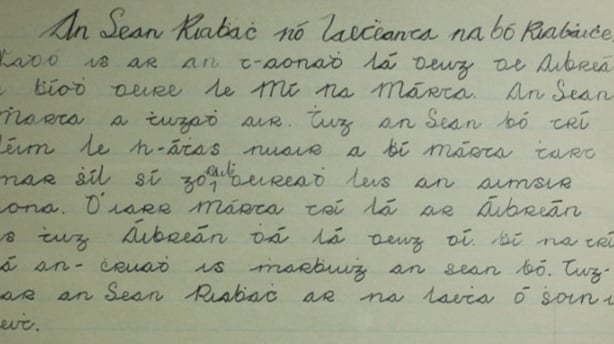 An Sean Riabaċ nó laeṫeanta na bó Riabaiċe.
adó is ar an t-aonaḋ lá deug de Aibreá
bíoḋ deire le Mí na Márta. An Sean
Márta a tugaḋ air. Ṫug an Sean bó trí
léim le h-áṫas nuair a bí Márta ṫart
mar ṡíl sí go raiḃ deireaḋ leis an aimsir
dona. D'iarr Márta trí lá ar Áibreán
is ṫug Áibreán dá lá deug dí. Bí na trí
lá an-ċruaḋ is ṁarbuiġ an sean bó. Tug-
ar an Sean Riabaċ ar na laeṫa ó ṡoin i
leiṫ.